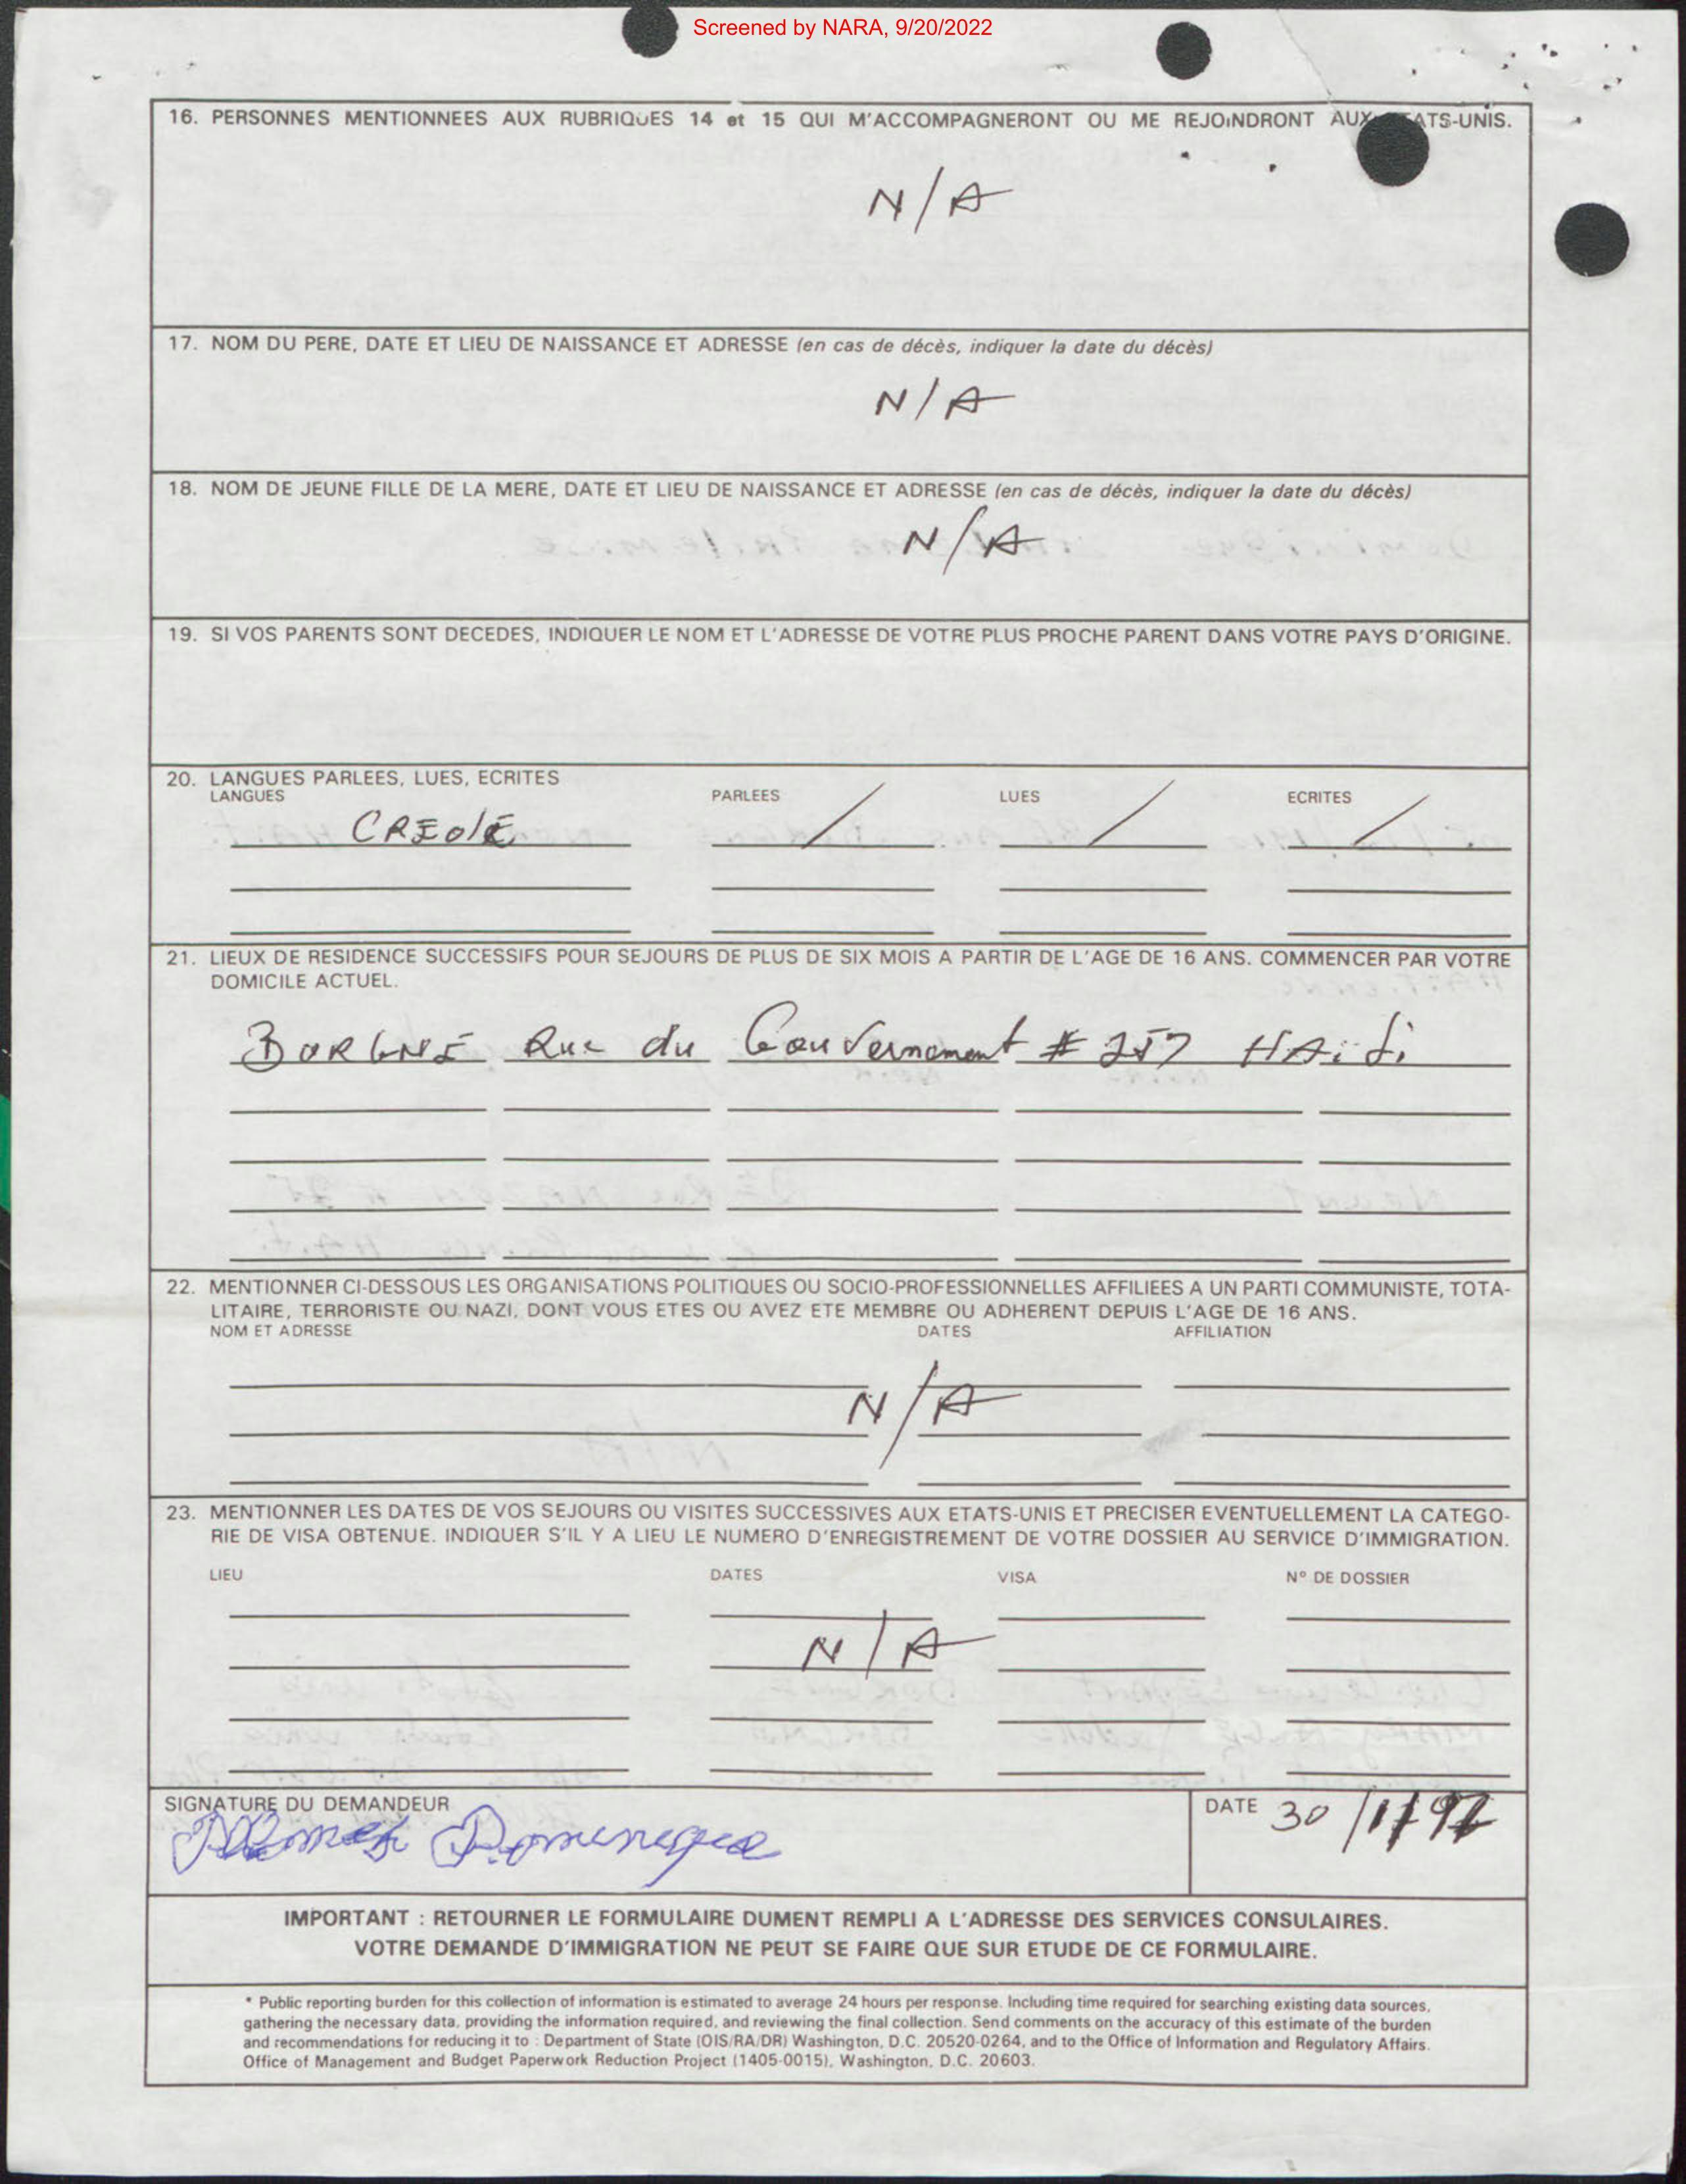 Screened by NARA, 9/20/2022
16. PERSONNES MENTIONNEES AUX RUBRIQUES 14 et 15 QUI M'ACCOMPAGNERONT OU ME REJOINDRONT AUX ATS-UNIS.
N/A
17. NOM DU PERE, DATE ET LIEU DE NAISSANCE ET ADRESSE (en cas de décès, indiquer la date du décès)
N/A
18. NOM DE JEUNE FILLE DE LA MERE, DATE ET LIEU DE NAISSANCE ET ADRESSE (en cas de décès, indiquer la date du décès)
N/A
19. SI VOS PARENTS SONT DECEDES, INDIQUER LE NOM ET L'ADRESSE DE VOTRE PLUS PROCHE PARENT DANS VOTRE PAYS D'ORIGINE.
20. LANGUES PARLEES, LUES, ECRITES
LANGUES PARLEES LUES ECRITES
CREOlE / / /
21. LIEUX DE RESIDENCE SUCCESSIFS POUR SEJOURS DE PLUS DE SIX MOIS A PARTIR DE L'AGE DE 16 ANS. COMMENCER PAR VOTRE
DOMICILE ACTUEL.
BORGNE Rue du Gouvernement # 257 HAiti
22. MENTIONNER CI-DESSOUS LES ORGANISATIONS POLITIQUES OU SOCIO-PROFESSIONNELLES AFFILIEES A UN PARTI COMMUNISTE, TOTA-
LITAIRE, TERRORISTE OU NAZI, DONT VOUS ETES OU AVEZ ETE MEMBRE OU ADHERENT DEPUIS L'AGE DE 16 ANS.
NOM ET ADRESSE DATES AFFILIATION
N/A
23. MENTIONNER LES DATES DE VOS SEJOURS OU VISITES SUCCESSIVES AUX ETATS-UNIS ET PRECISER EVENTUELLEMENT LA CATEGO-
RIE DE VISA OBTENUE. INDIQUER S'IL Y A LIEU LE NUMERO D'ENREGISTREMENT DE VOTRE DOSSIER AU SERVICE D'IMMIGRATION.
LIEU DATES VISA N° DE DOSSIER
N/A
SIGNATURE DU DEMANDEUR DATE 30/1/97
Dominique
IMPORTANT : RETOURNER LE FORMULAIRE DUMENT REMPLI A L'ADRESSE DES SERVICES CONSULAIRES.
VOTRE DEMANDE D'IMMIGRATION NE PEUT SE FAIRE QUE SUR ETUDE DE CE FORMULAIRE.
* Public reporting burden for this collection of information is estimated to average 24 hours per response. Including time required for searching existing data sources,
gathering the necessary data, providing the information required, and reviewing the final collection. Send comments on the accuracy of this estimate of the burden
and recommendations for reducing it to : Department of State (OIS/RA/DR) Washington, D.C. 20520-0264, and to the Office of Information and Regulatory Affairs.
Office of Management and Budget Paperwork Reduction Project (1405-0015), Washington, D.C. 20603.